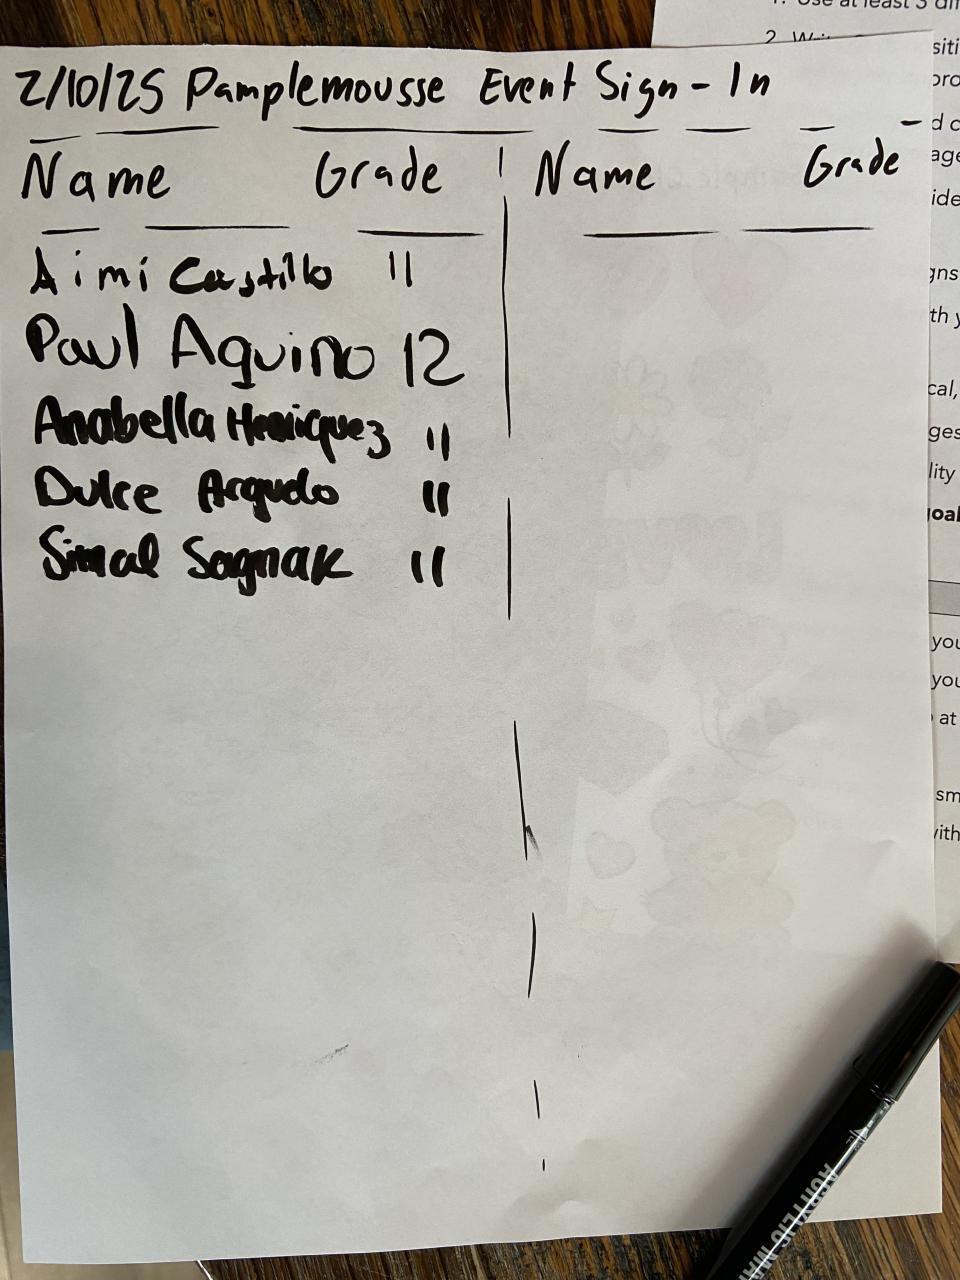 2/10/25 Pamplemousse Event Sign-In
Name Grade Name Grade
Aimi Castillo 11
Paul Aquino 12
Anabella Henriquez 11
Dulce Arguelo 11
Simal Sagnak 11
1. Use at least 3
2.
siti
pro
d c
age
ide
gns
th y
cal,
ges
lity
goal
you
you
at
sm
with
ACRYLIC MA